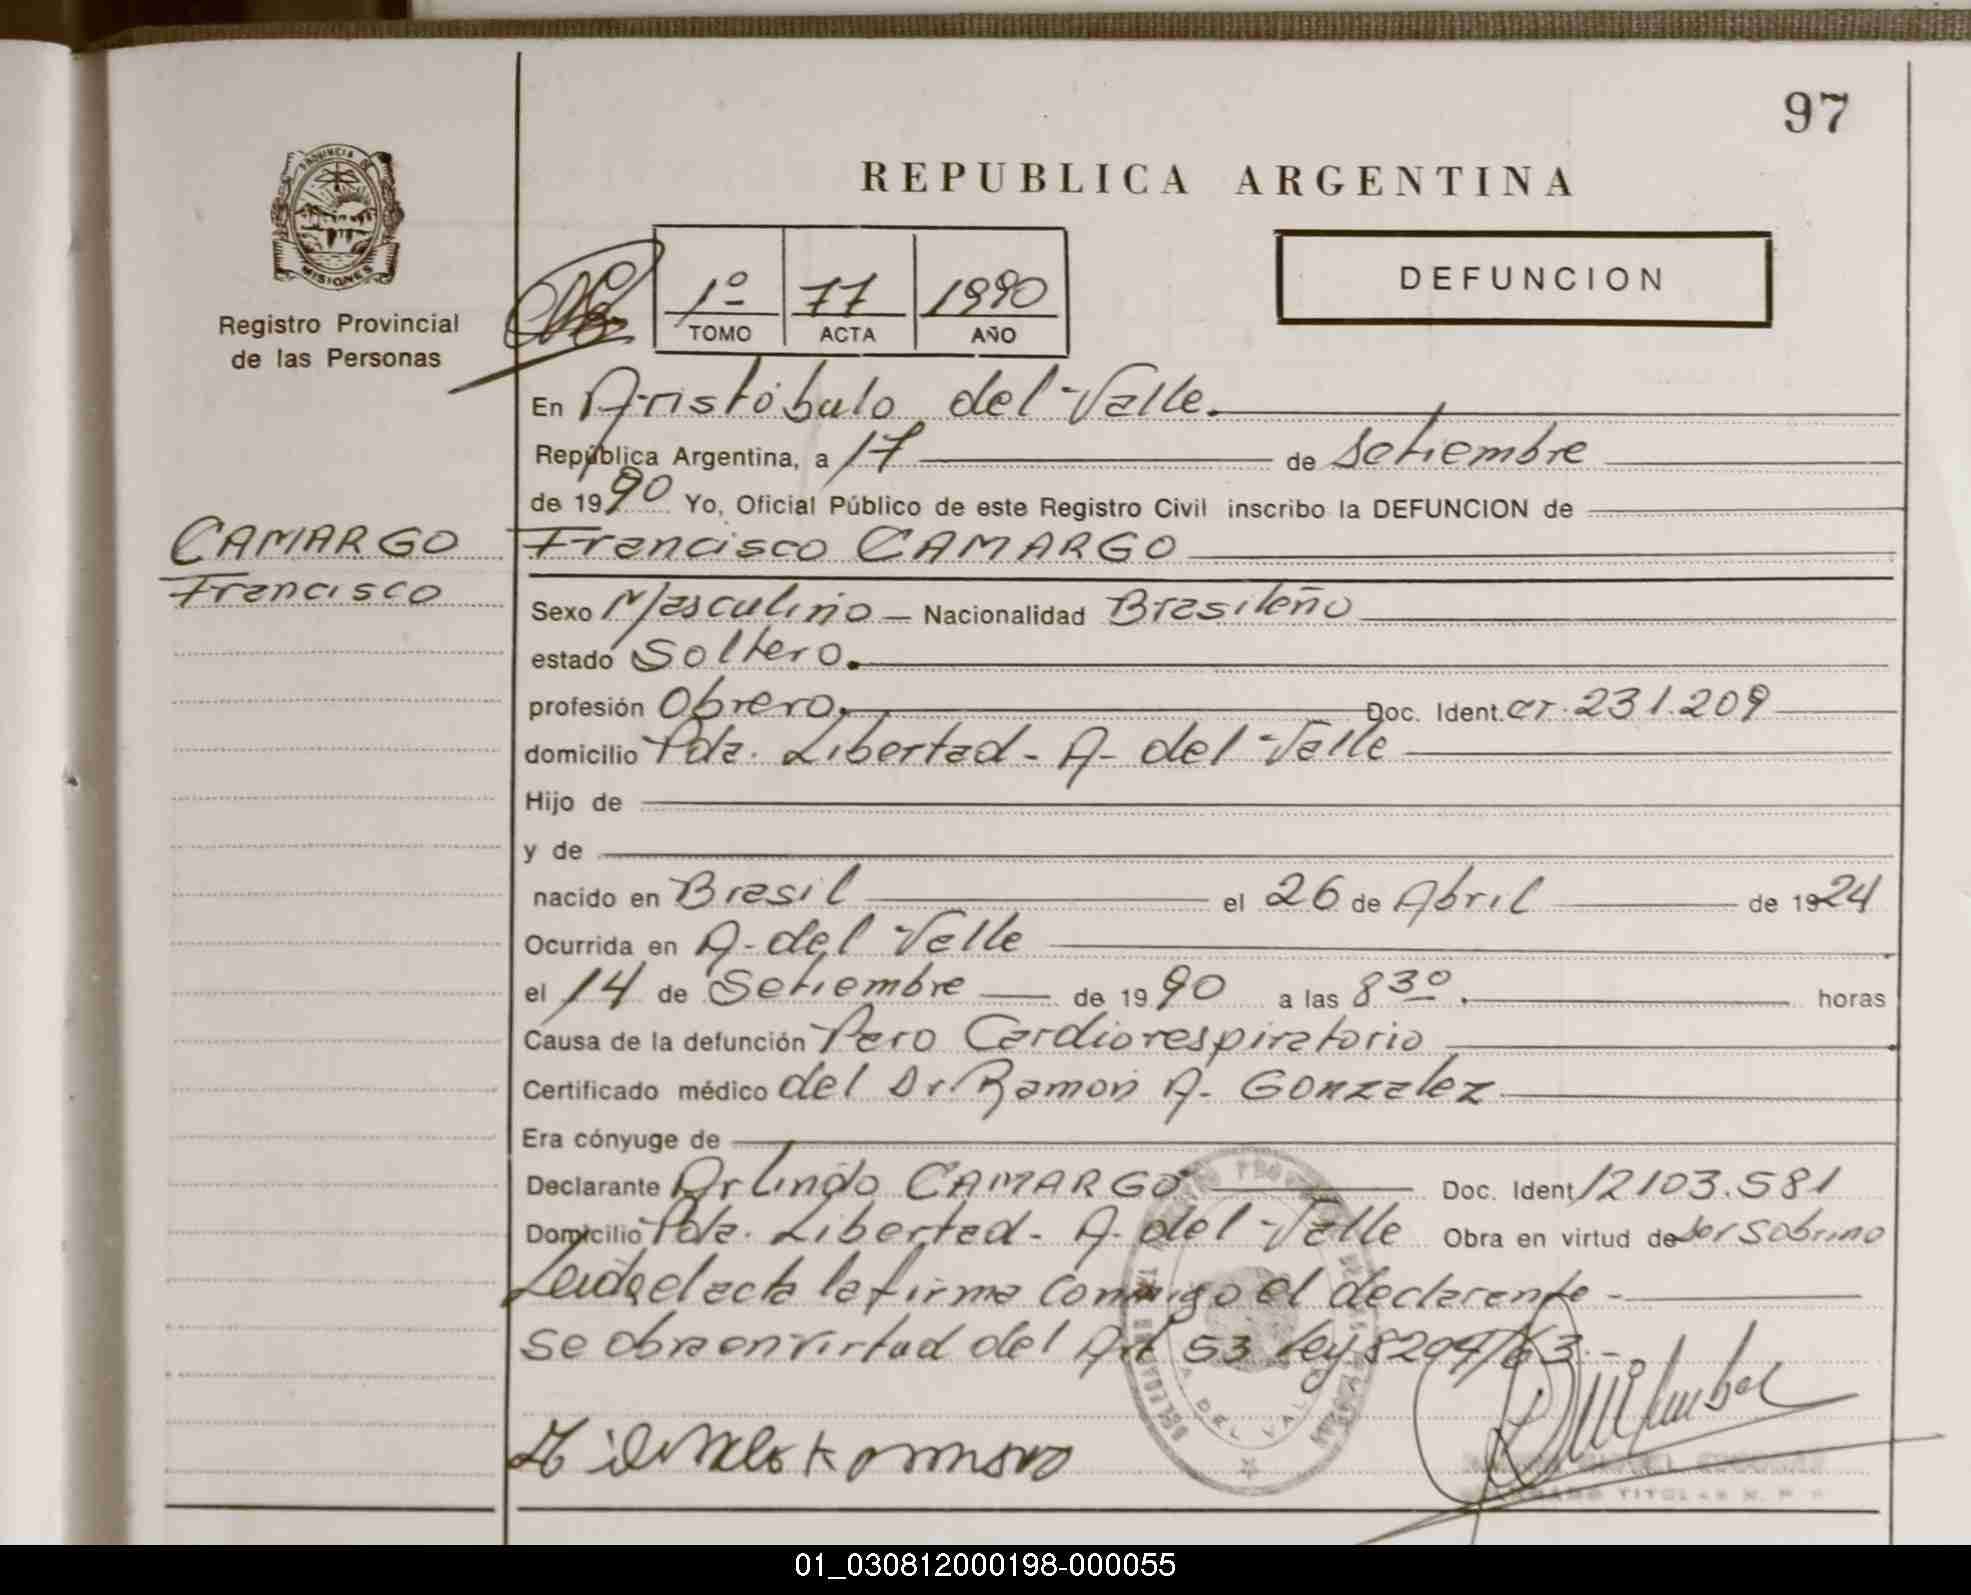 97
REPUBLICA ARGENTINA
PROVINCIA DE
MISIONES
Registro Provincial
de las Personas
DEFUNCION
1º 77 1990
TOMO ACTA AÑO
En Aristóbulo del Valle.
República Argentina, a 17 de setiembre
de 1990 Yo, Oficial Público de este Registro Civil inscribo la DEFUNCION de
CAMARGO
Francisco
Francisco CAMARGO
Sexo Masculino - Nacionalidad Brasileño
estado Soltero.
profesión Obrero. Doc. Ident. CI. 231.209
domicilio Pda. Libertad - A- del Valle
Hijo de
y de
nacido en Brasil el 26 de Abril de 1924
Ocurrida en A- del Valle
el 14 de Setiembre de 1990 a las 8 30. horas
Causa de la defunción Paro Cardiorespiratorio
Certificado médico del Dr. Ramon A- Gonzalez
Era cónyuge de
Declarante Arlindo CAMARGO Doc. Ident 12103.581
Domicilio Pda. Libertad - A. del Valle Obra en virtud de ser sobrino
Leida el acta la firma conmigo el declarante -
se obra en virtud del Art 53 Ley 8204/63. -
DEL VALLE
TITULAR
01_030812000198-000055